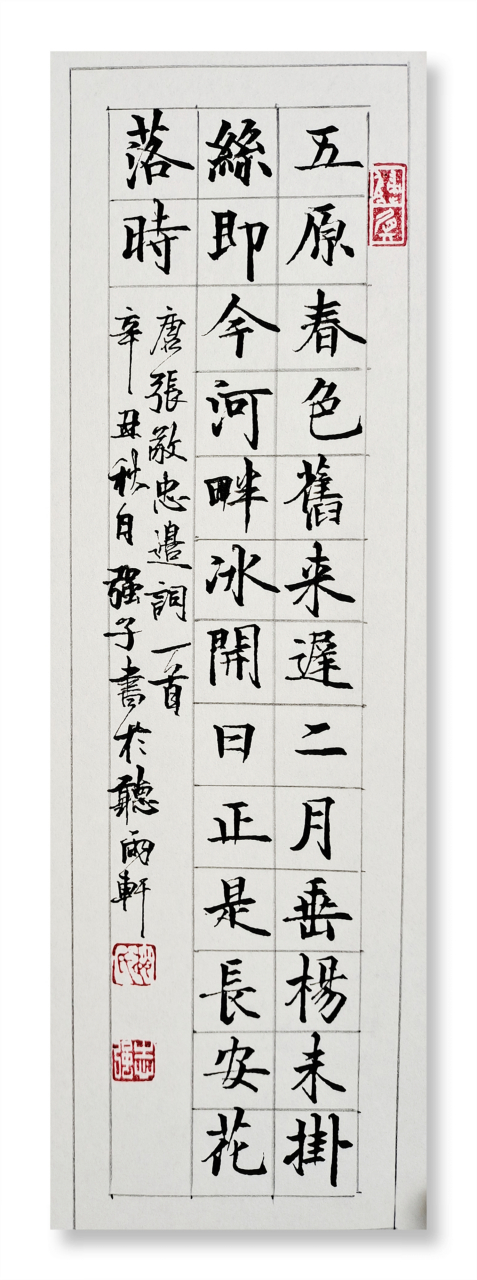 五原春色舊来遲二月垂楊未掛
絲即今河畔冰開日正是長安花
落時
唐張敬忠邊詞一首
辛丑秋月强子書於聽雨軒
趙氏
志强